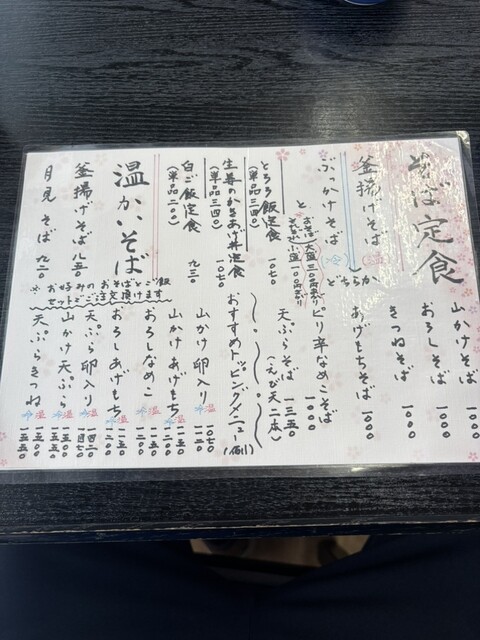 そば定食
釜揚げそば 温
ぶっかけそば 冷
どちらか
と
おそば大盛 三〇〇円増し
とろろ飯定食 一〇七〇
(単品三四〇)
かきあげ丼定食 一〇七〇
(単品三四〇)
白ご飯定食 九三〇
(単品二〇〇)
山かけそば 一〇〇〇
おろしそば 一〇〇〇
きつねそば 一〇〇〇
あげもちそば 一〇〇〇
ピリ辛なめこそば 一〇〇〇
天ぷらそば 一三五〇
(えび天二本)
おすすめトッピングメニュー(例)
山かけ卵入り 温 一〇七〇 冷 一一二〇
山かけあげもち 温 一一五〇 冷 一二〇〇
おろしなめこ 温 一一五〇 冷 一二〇〇
おろしあげもち 温 一一五〇 冷 一二〇〇
天ぷら卵入り 温 一四二〇 冷 一四七〇
山かけ天ぷら 温 一五〇〇 冷 一五五〇
天ぷらきつね 温 一五〇〇 冷 一五五〇
温かいそば
釜揚げそば 八五〇
月見そば 九二〇
※お好みのおそばとご飯
セットでご注文頂けます